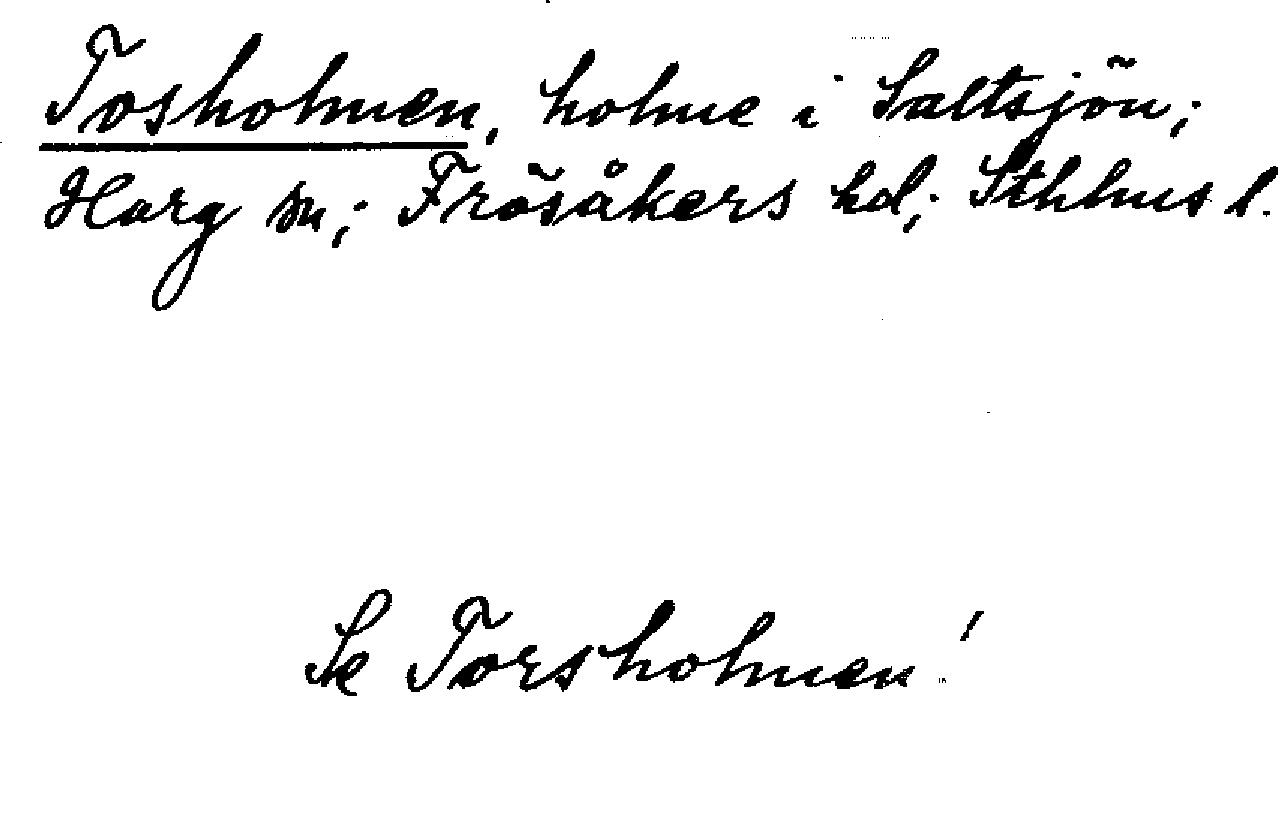 Tosholmen, holme i Saltsjön;
Harg sn; Frösåkers hd; Sthlms l.
Se Torsholmen!